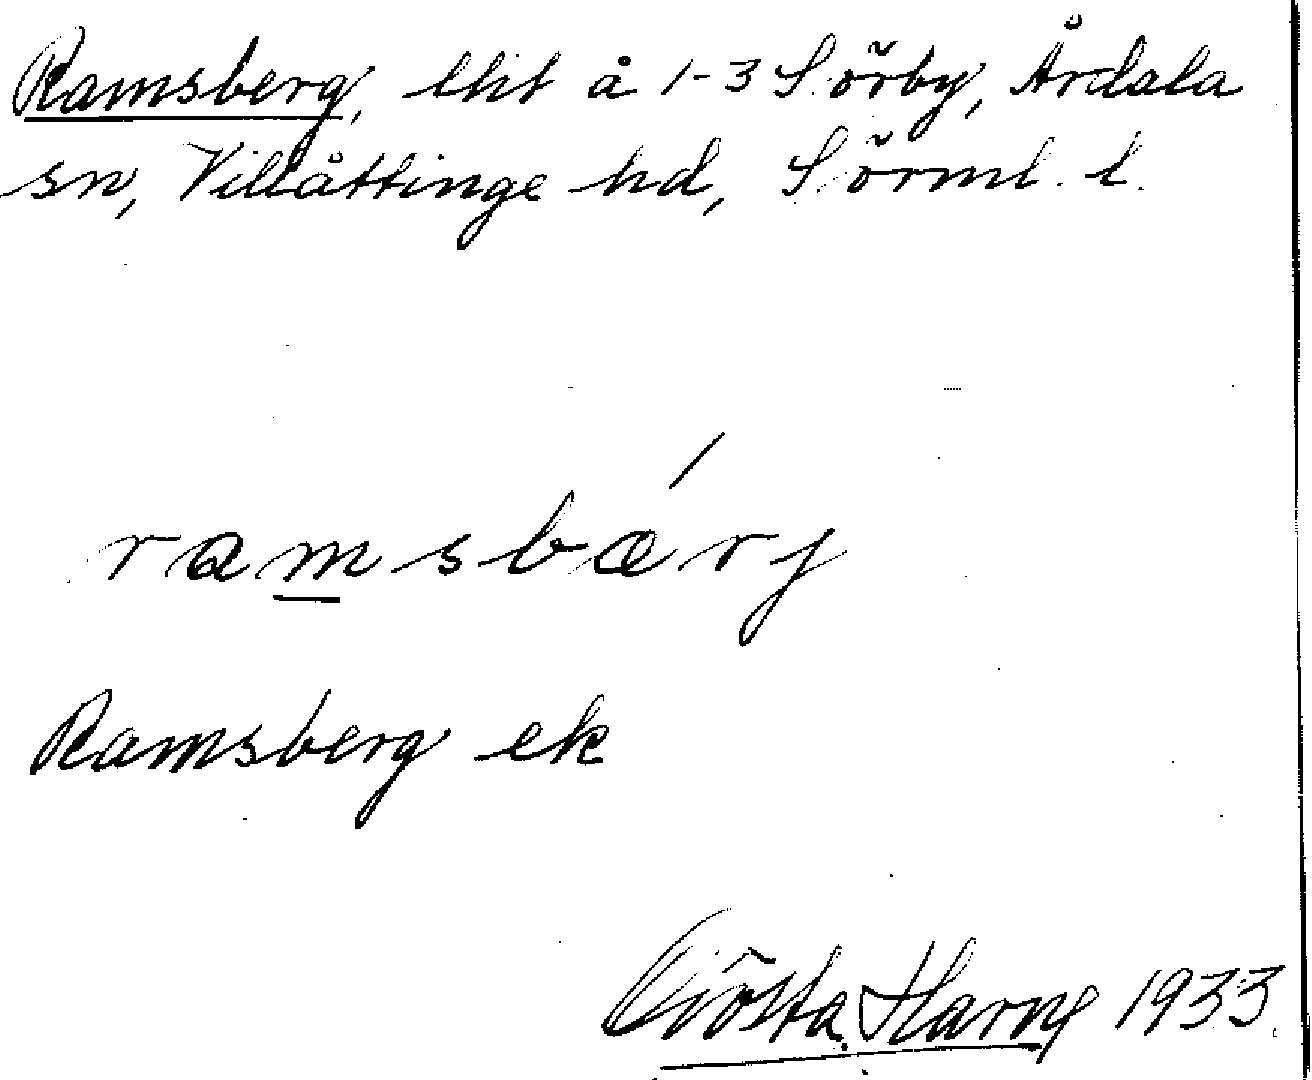 Ramsberg, lht å 1-3 Sörby, Årdala
sn, Villåttinge hd, Sörml. l.
ramsbærj
Ramsberg ek
Gösta Harng 1933.